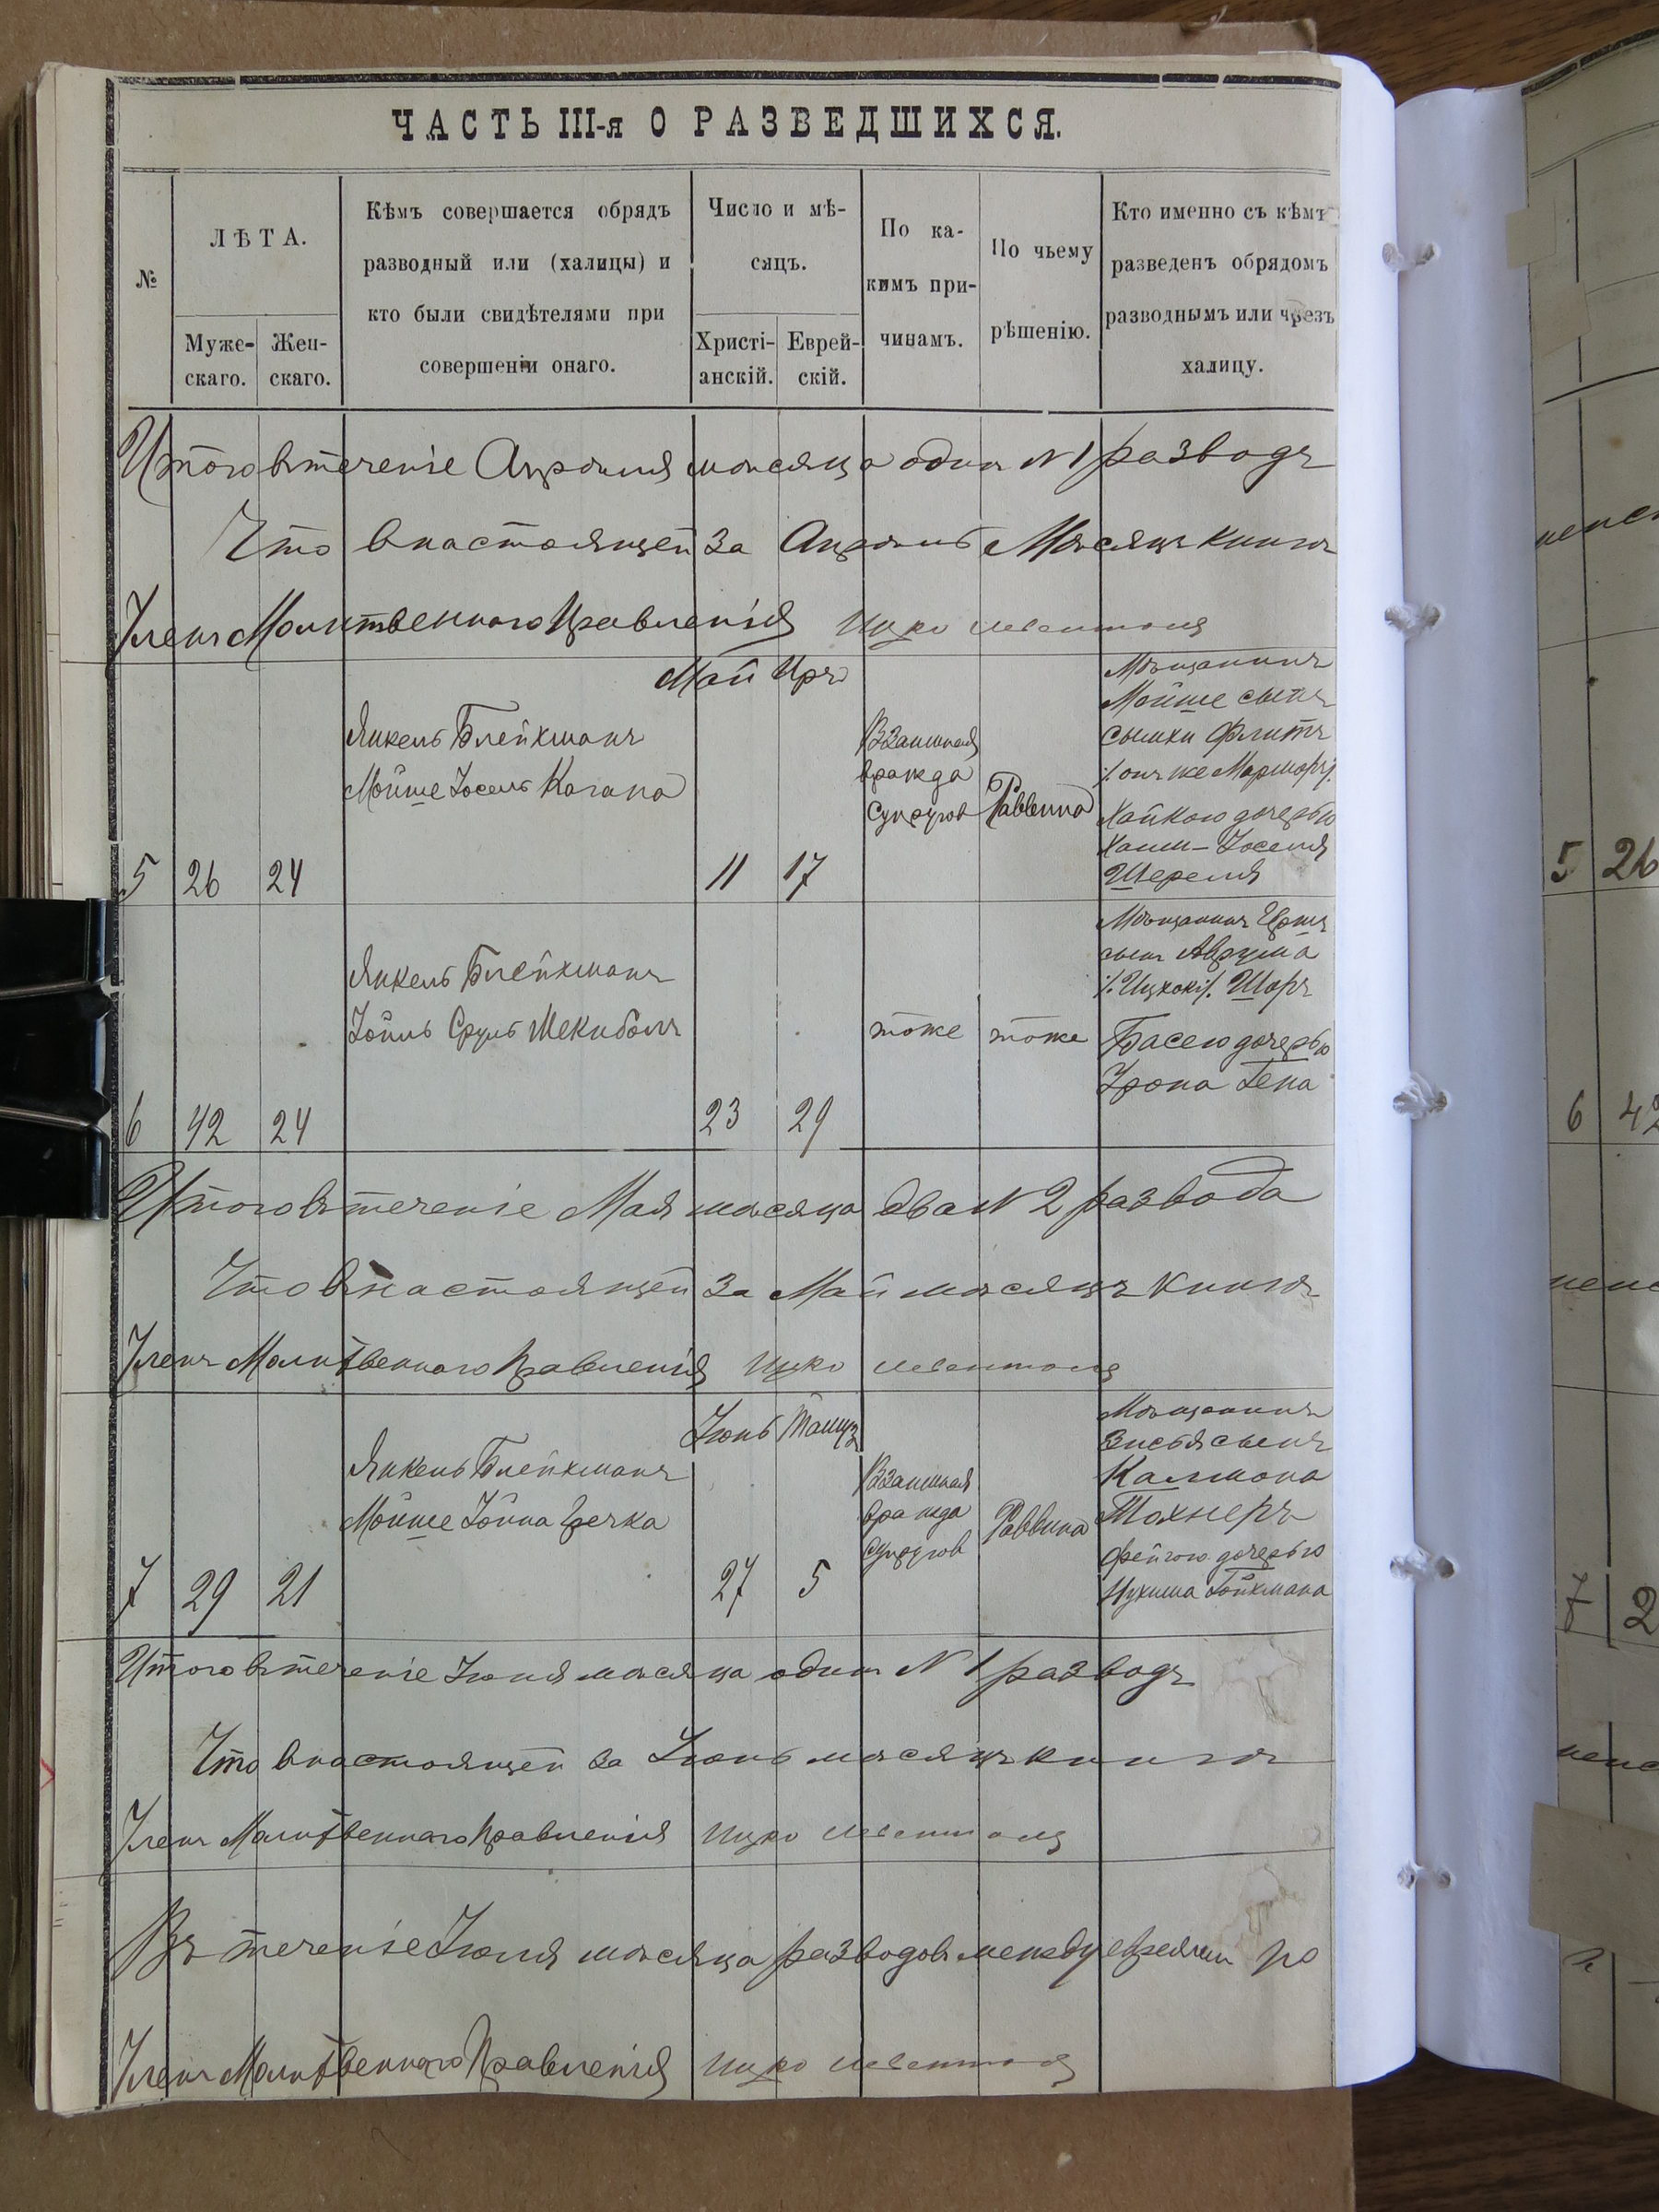 ЧАСТЬ III-я О РАЗВЕДШИХСЯ.
№
ЛѢТА.
Муже-
скаго.
Жен-
скаго.
Кѣмъ совершается обрядъ
разводный или (халицы) и
кто были свидѣтелями при
совершеніи онаго.
Число и мѣ-
сяцъ.
Христі-
анскій.
Еврей-
скій.
По ка-
кимъ при-
чинамъ.
По чьему
рѣшенію.
Кто именно съ кѣмъ
разведенъ обрядомъ
разводнымъ или чрезъ
халицу.
Итого втеченіе Апрѣля мѣсяца один N 1 разводъ
Что внастоящей за Апрѣль Мѣсяцъ книгѣ
Членъ Молитвенного Правленія Ицко
Май Иръ
5 26 24
Янкель Блейхманъ
Мойше Іосель Кагана
11 17
Взаимная
вражда
супругов
Раввина
Мѣщанинъ
Мойше сынъ
Сымхи Флитъ
Хайкою дочерью
Хаим-Іоселя
Шереля
6 42 24
Янкель Блейхманъ
Іойль Сруль
23 29
тоже
тоже
Мѣщанинъ
сынъ Аврума
/.Ицхокъ/. Шоръ
Басею дочерью
Арона
Итого втеченіе Мая мѣсяца два N 2 развода
Что внастоящей за Май мѣсяцъ книгѣ
Членъ Молитвенного Правленія Ицко
Іюнь Тамуз
7 29 21
Янкель Блейхманъ
Мойше Іойна
27 5
Взаимная
вражда
супругов
Раввина
Мѣщанинъ
Зисья сынъ
Калмона
Тохнеръ
Фейгою дочерью
Нухима Гойхмана
Итого втеченіе Іюня мѣсяца один N 1 разводъ
Что внастоящей за Іюнь мѣсяцъ книгѣ
Членъ Молитвенного Правленія Ицко
Въ теченіе Іюля мѣсяца разводов между евреями
Членъ Молитвенного Правленія Ицко
5 26
6 42
7 2